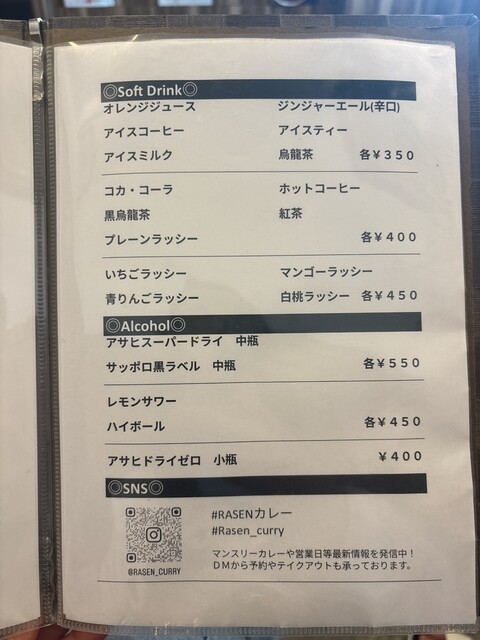 ◎Soft Drink◎
オレンジジュース ジンジャーエール(辛口)
アイスコーヒー アイスティー
アイスミルク 烏龍茶 各￥３５０
コカ・コーラ ホットコーヒー
黒烏龍茶 紅茶
プレーンラッシー 各￥４００
いちごラッシー マンゴーラッシー
青りんごラッシー 白桃ラッシー 各￥４５０
◎Alcohol◎
アサヒスーパードライ　中瓶
サッポロ黒ラベル　中瓶 各￥５５０
レモンサワー
ハイボール 各￥４５０
アサヒドライゼロ　小瓶 ￥４００
◎SNS◎
#RASENカレー
#Rasen_curry
マンスリーカレーや営業日等最新情報を発信中！
ＤＭから予約やテイクアウトも承っております。
@RASEN_CURRY